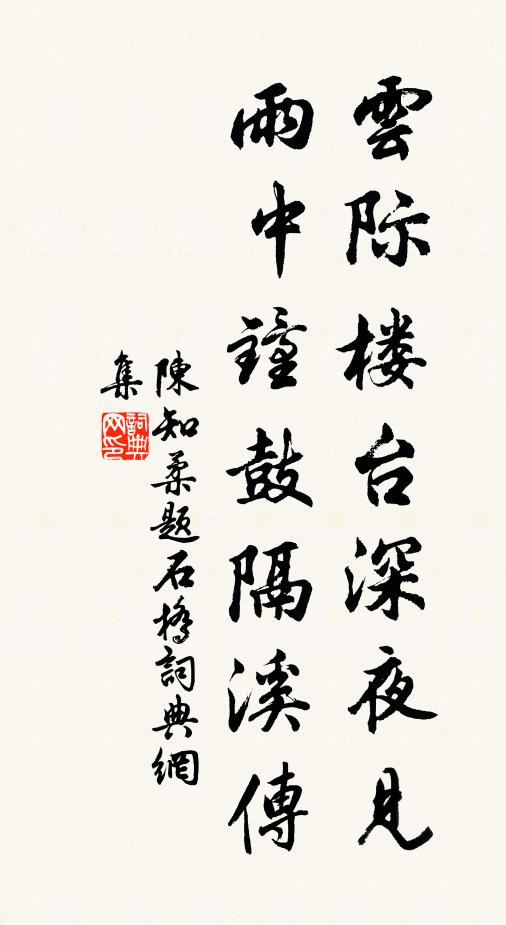 雲际楼台深夜見
雨中鐘鼓隔溪傳
陳知柔题石橋詞典網
集
詞典
网印